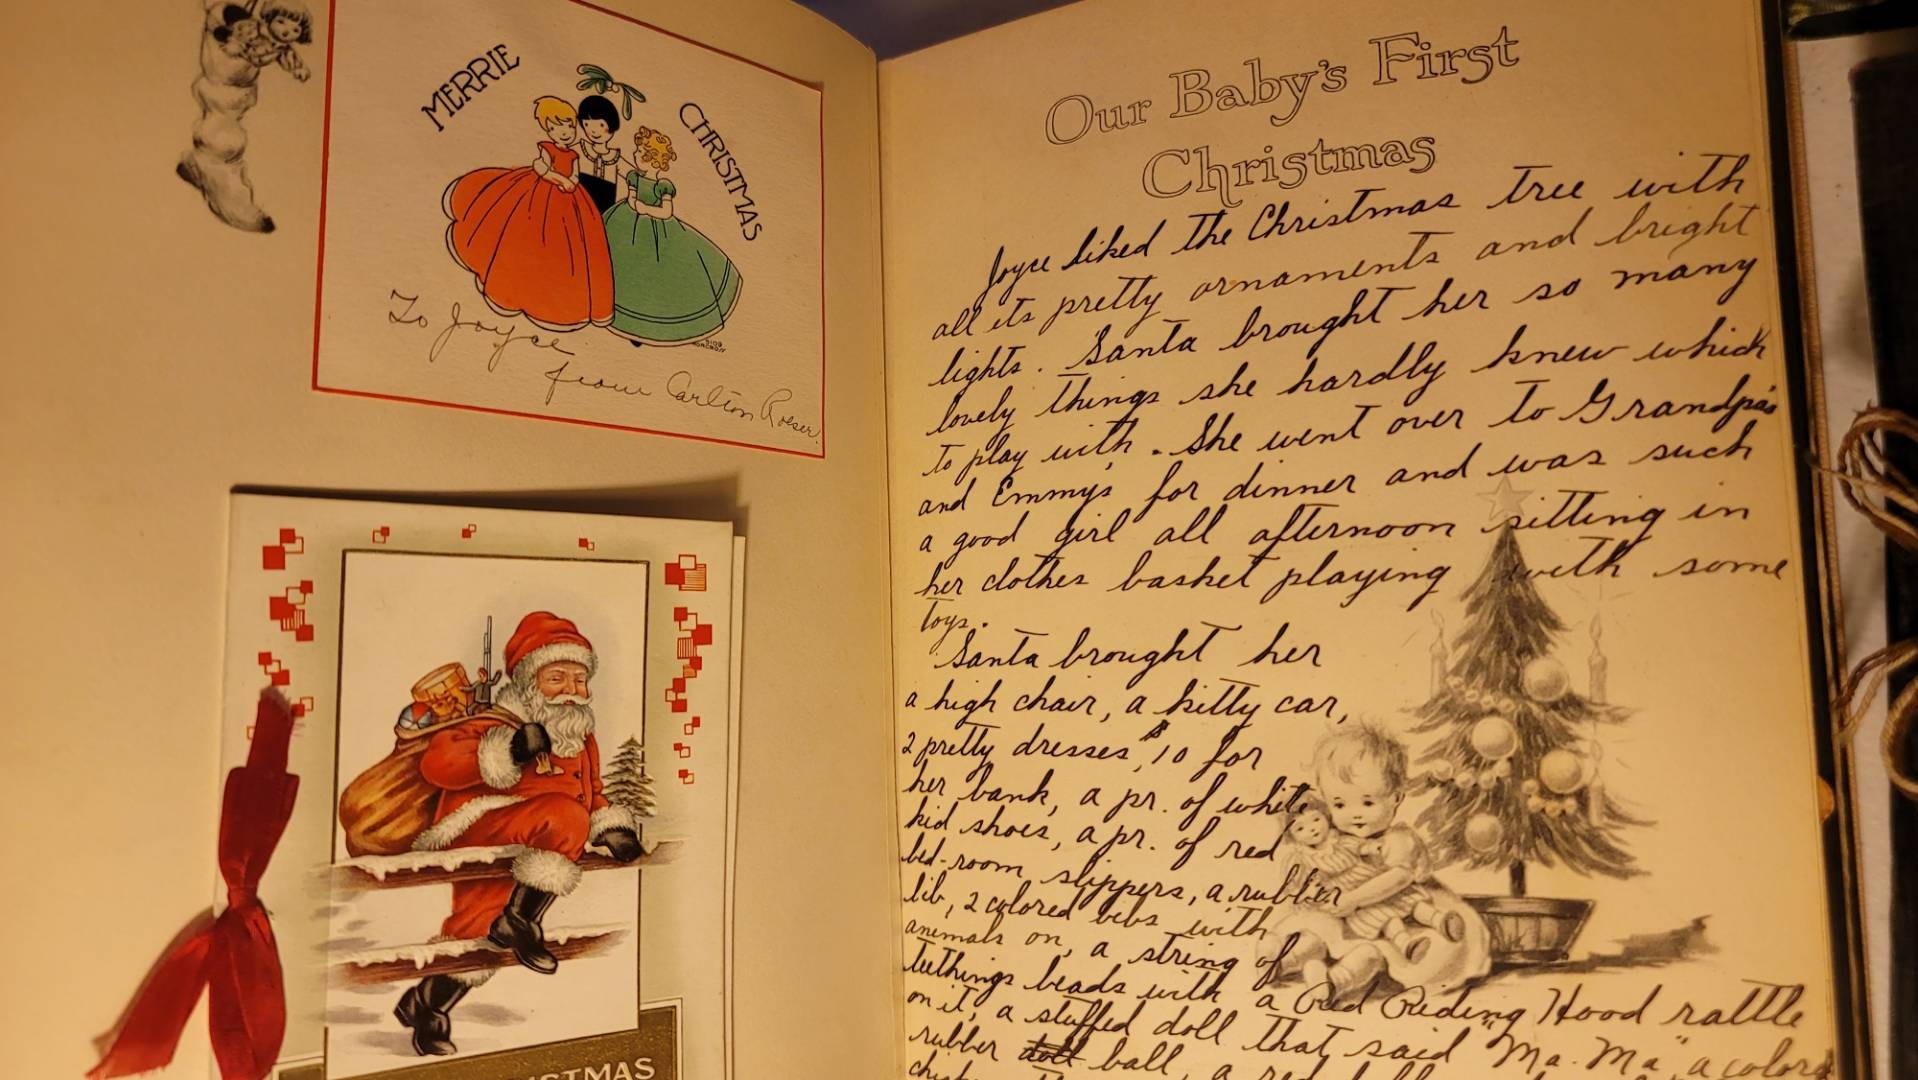 MERRIE
CHRISTMAS
To Joyce
from Carlton Roeser.
CHRISTMAS
Our Baby's First
Christmas
Joyce liked the Christmas tree with
all its pretty ornaments and bright
lights. Santa brought her so many
lovely things she hardly knew which
to play with. She went over to Grandpa's
and Emmy's for dinner and was such
a good girl all afternoon sitting in
her clothes basket playing with some
toys.
Santa brought her
a high chair, a kitty car,
2 pretty dresses, $10 for
her bank, a pr. of white
kid shoes, a pr. of red
bed-room slippers, a rubber
bib, 2 colored bibs with
animals on, a string of
teethings beads with a Red Riding Hood rattle
on it, a stuffed doll that said "Ma-Ma", a colored
rubber doll ball, a red